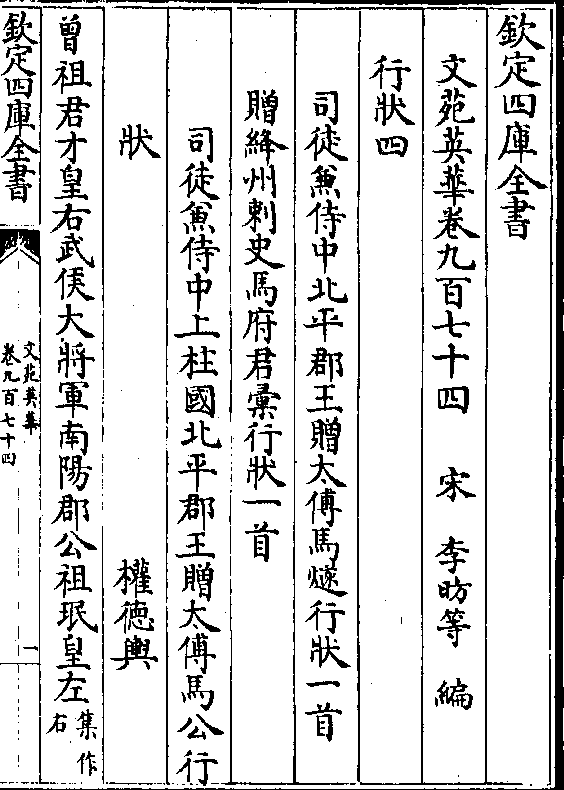 欽定四庫全書
文苑英華卷九百七十四　宋　李昉等　編
行狀四
司徒兼侍中北平郡王贈太傅馬燧行狀一首
贈絳州刺史馬府君彙行狀一首
司徒兼侍中上柱國北平郡王贈太傅馬公行
狀　權德輿
曾祖君才皇右武侯大將軍南陽郡公祖珉皇左集作右
欽定四庫全書
文苑英華
卷九百七十四
一